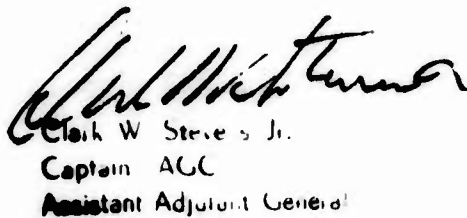 Clark W Stevens Jr.
Captain AGC
Assistant Adjutant General